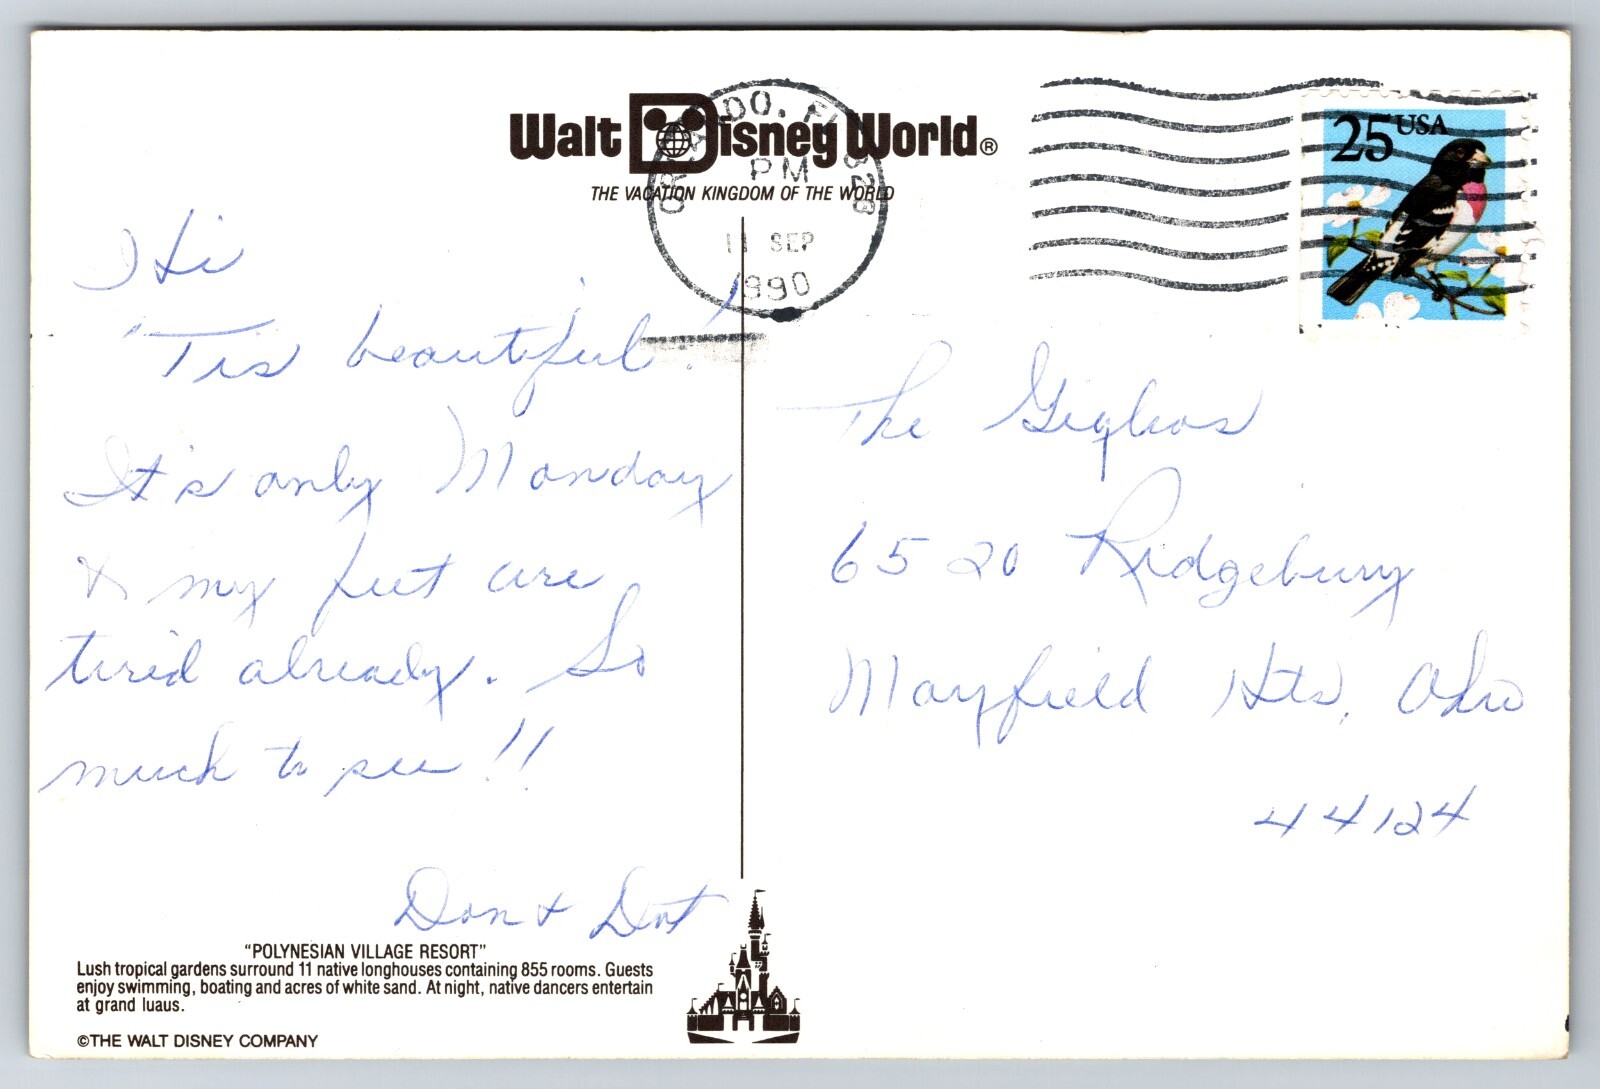 Walt Disney World®
THE VACATION KINGDOM OF THE WORLD
ORLANDO, FL 328
PM
11 SEP
1990
25 USA
Hi
'Tis beautiful!
It's only Monday
& my feet are
tired already. So
much to see!!
Don & Dot
The Giglios
6520 Ridgebury
Mayfield Hts, Ohio
44124
"POLYNESIAN VILLAGE RESORT"
Lush tropical gardens surround 11 native longhouses containing 855 rooms. Guests
enjoy swimming, boating and acres of white sand. At night, native dancers entertain
at grand luaus.
©THE WALT DISNEY COMPANY